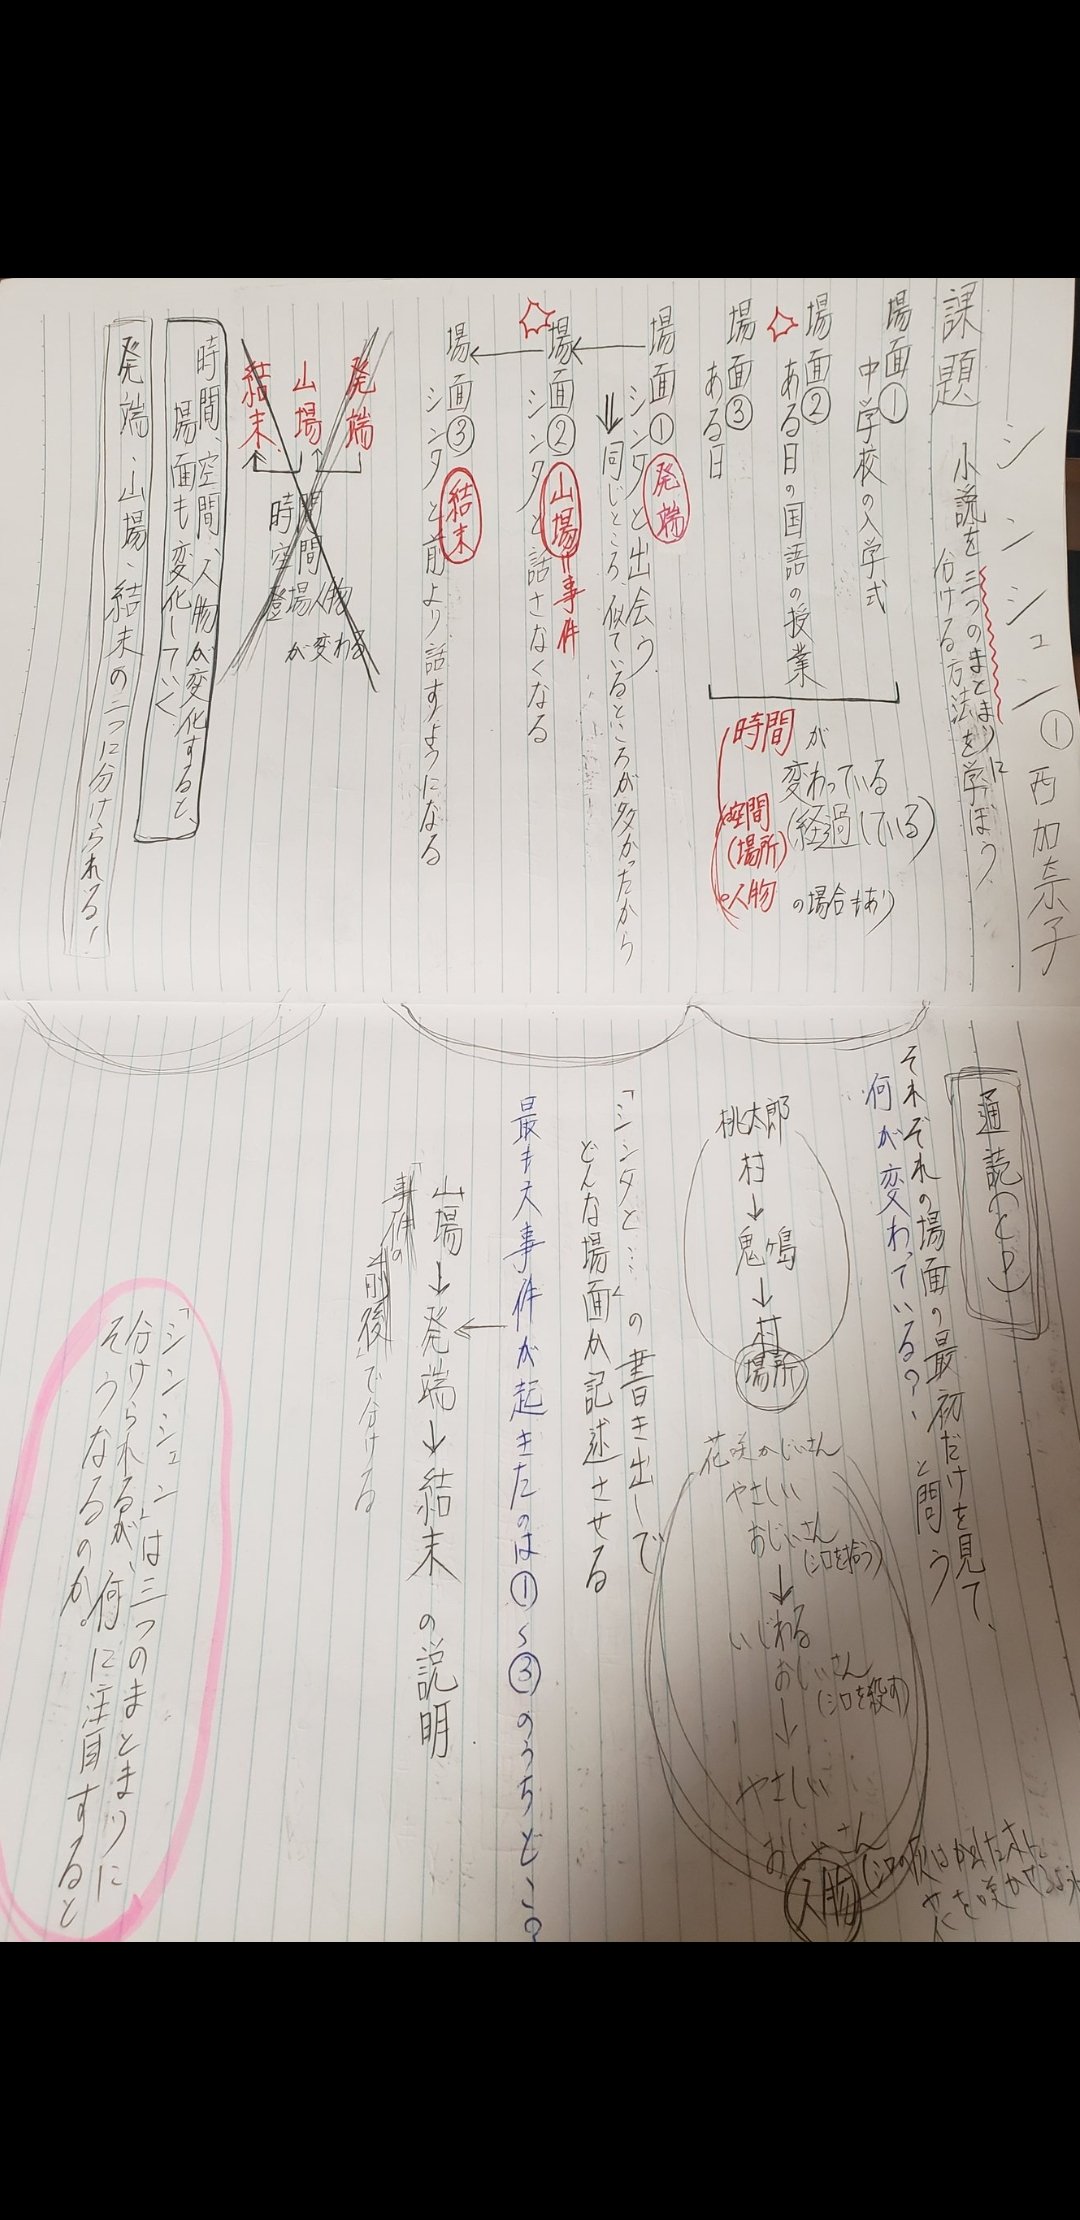 シンシュン① 西加奈子
課題 小説を三つのまとまりに
分ける方法を学ぼう
場面①
中学校の入学式
場面②
ある日の国語の授業
場面③
ある日
時間が
変わっている
(経過している)
空間
(場所)
人物 の場合もあり
場面① 発端
シンタと出会う
同じところ、似ているところが多かったから
場面② 山場=事件
シンタと話さなくなる
場面③ 結末
シンタと前より話すようになる
発端
山場
結末
時間
空間
登場人物
が変わる
時間、空間、人物が変化すると、
場面も変化していく
発端、山場、結末の三つに分けられる!
通読のとき
それぞれの場面の最初だけを見て、
何が変わっている?、と問う
桃太郎
村→鬼ヶ島→村
場所
花咲かじいさん
やさしい
おじいさん
(シロを拾う)
→
いじわる
おじいさん
(シロを殺す)
→
やさしい
おじいさん
人物
「シンタと…」の書き出しで
どんな場面か記述させる
最も大事件が起きたのは①〜③のうちどこ?
山場→発端→結末の説明
「事件の前後」で分ける
「シンシュン」は三つのまとまりに
分けられるが、何に注目すると
そうなるのか。